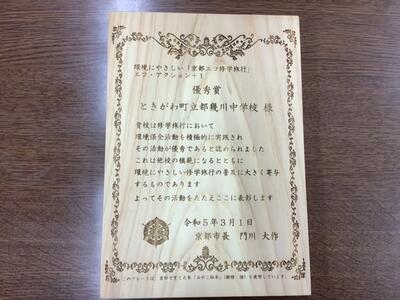 環境にやさしい「京都エコ修学旅行」
エコ・アクション+1
優秀賞
ときがわ町立都幾川中学校 様
貴校は修学旅行において
環境保全活動を積極的に実践され
その活動が優秀であると認められました
これは他校の模範になるとともに
環境にやさしい修学旅行の普及に大きく寄与
するものであります
よってその活動をたたえここに表彰します
令和5年3月1日
京都市長 門川 大作
このプレートは、京都市で育った木「みやこ杣木」(樹種:檜)を使用しています。